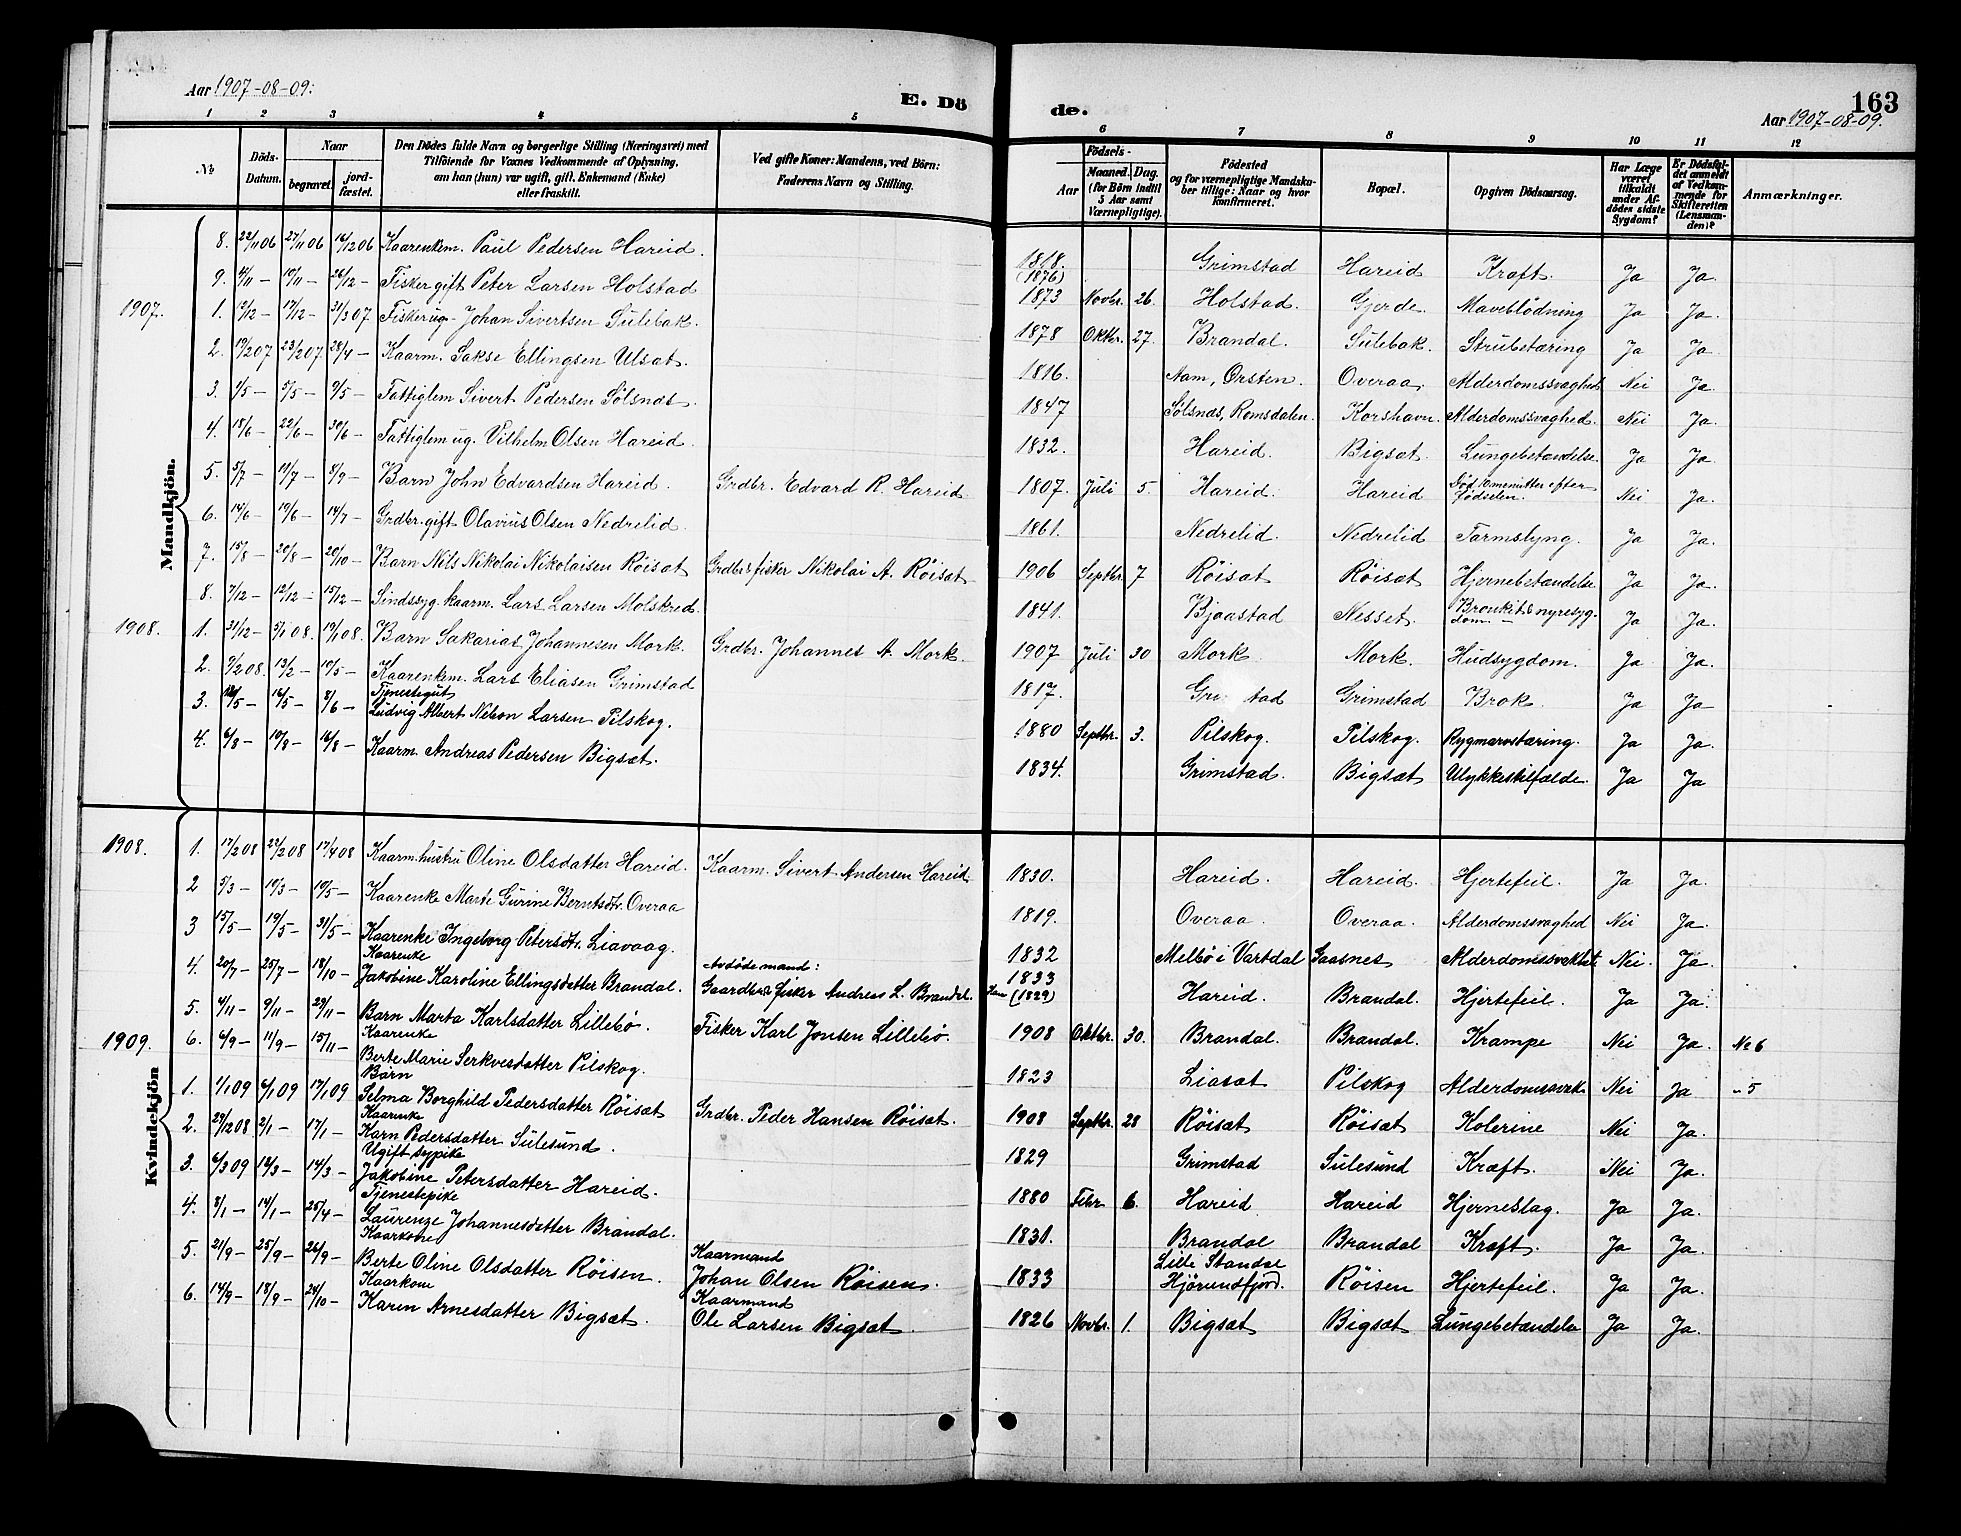 Aar 1907-08-09.
E. Dö
de.
163
Aar 1907-08-09.
1 2 3 4 5 6 7 8 9 10 11 12
№ Döds-Datum. Naar begravet. jord-fæstet. Den Dödes fulde Navn og borgerlige Stilling (Næringsvei) med Tilföiende for Voxnes Vedkommende af Oplysning, om han (hun) var ugift, gift, Enkemand (Enke) eller fraskilt. Ved gifte Koner: Mandens, ved Börn: Faderens Navn og Stilling. Födsels- Aar Maaned. Dag. (for Börn indtil 5 Aar samt Værnepligtige). Födested og for værnepligtige Mandska-ber tillige: Naar og hvor konfirmeret. Bopæl. Opgiven Dödsaarsag. Har Læge været tilkaldt under Af-dödes sidste Sygdom? Er Dödsfal-det anmeldt af Vedkom-mende for Skifteretten (Lensman-den)? Anmærkninger.
Mandkjön.
8. 22/11 06 27/11 06 16/12 06 Kaarenkem. Paul Pedersen Hareid. 1818. Grimstad Hareid Kræft. Ja Ja.
9. 4/11 - 10/11 - 26/12 - Fisker gift Peter Larsen Holstad (1876) 1873 Novbr. 26. Holstad. Gjerde. Maveblödning Ja Ja.
1907. 1. 12/12 - 17/12 - 31/3 07 Fisker ug- Johan Sivertsen Sulebak. 1878 Oktbr. 27. Brandal. Sulebak. Strubetæring Ja Ja
2. 19/2 07 23/2 07 28/4 - Kaarm. Sakse Ellingsen Ulsæt. 1816. Aam, Ørsten. Overaa, Alderdomssvaghed Nei Ja
3. 1/5 - 5/5 - 9/5 - Fattiglem Sivert Pedersen Sølsnæs. 1847 Sølsnæs, Romsdalen. Korshavn. Alderdomssvaghed. Nei Ja.
4. 18/6 - 22/6 - 30/6 - Fattiglem ug. Vilhelm Olsen Hareid. 1832. Hareid. Bigsæt. Lungebetændelse. Ja Ja.
5. 5/7 - 11/7 - 8/9 - Barn John Edvardsen Hareid. Grdbr. Edvard R. Hareid. 1807. Juli 5. Hareid. Hareid Död 10 menutter efter födselen. Nei Ja.
6. 14/6 - 19/6 - 14/7 - Grdbr. gift Olavius Olsen Nedrelid. 1861. Nedrelid. Nedrelid Tarmslyng. Ja Ja.
7. 15/8 - 20/8 - 20/10 - Barn Nils Nikolai Nikolaisen Röisæt Grdbr & fisker Nikolai A. Röisæt 1906 Septbr. 7 Röisæt Röisæt Hjernebetændelse Ja Ja.
8. 7/12 - 12/12 - 15/12 - Sindssyg kaarm. Lars Larsen Molskred. 1841. Bjaastad Nesset. Bronkit & nyresyg-dom. Ja Ja.
1908. 1. 31/12 - 5/1 08. 19/1 08. Barn Sakarias Johannesen Mork. Grdbr. Johannes A. Mork. 1907 Juli 30 Mork Mork. Hudsygdom. Ja Ja.
2. 9/2 08. 13/2 - 10/5 - Kaarenkem. Lars Eliasen Grimstad 1817. Gri stad Grimstad Brok. Ja Ja
3. 12/5 - 16/5 - 8/6 - Tjenestegut Ludvig Albert Nelson Larsen Pilskog. 1880 Septbr. 3. Pilskog. Pilskog. Rygmarvstæring. Ja Ja.
4. 6/8 - 10/8 - 16/8 - Kaarm. Andreas Pedersen Bigsæt. 1834. Grimstad. Bigsæt Ulykkestilfælde. Ja Ja
Kvindekjön
1908. 1. 17/2 08 22/2 08 17/4 08 Kaarm. hustru Oline Olsdatter Hareid. Kaarm. Sivert Andersen Hareid 1830. Hareid. Hareid. Hjertefeil. Ja Ja.
2 5/3 - 10/3 - 10/5 - Kaarenke Marte Gurine Berntsdtr. Overaa 1819. Overaa. Overaa. Alderdomssvaghed Nei Ja.
3 15/5 - 19/5 - 31/5 - Kaarenke Ingeborg Petersdtr. Liavaag. 1832 Melbö i Vartdal Gaasnes Alderdomssvakhet Nei Ja.
4. 20/7 - 25/7 - 18/10 - Kaarenke Jakobine Karoline Ellingsdatter Brandal. Avdöde mand: Gaardbr & fisker Andreas L. Brandal. 1833 (1829) Hareid. Brandal. Hjertefeil. Ja Ja.
5. 4/11 - 9/11 - 29/11 - Barn Marta Karlsdatter Lillebö. Fisker Karl Jonsen Lillebö. 1908 Oktbr. 30. Brandal. Brandal. Krampe Nei Ja. No 6
1909. 6. 6/9 - 11/9 - 15/11 - Kaarenke Berte Marie Serkvesdatter Pilskog. 1823 Liasæt Pilskog Alderdomssvak Nei Ja „ 5
1. 1/1 09 6/1 09 17/1 09 Barn Selma Borghild Pedersdatter Röisæt Grdbr. Peder Hansen Röisæt. 1908 Septbr. 28 Röisæt Röisæt Kolerine Nei Ja.
2. 29/12 08 2/1 - 17/1 - Kaarenke Karn Pedersdatter Sulesund. 1829 Grimstad Sulesund Kræft. Nei Ja.
3. 6/3 09 12/3 - 14/3 - Ugift sypike Jakobine Petersdatter Hareid. 1880 Febr 6. Hareid Hareid Hjerneslag. Ja Ja.
4. 8/1 - 14/1 - 25/4 - Tjenestepike Laurenze Johannesdatter Brandal. 1831. Brandal Brandal Kræft. Ja Ja.
5. 21/9 - 25/9 - 26/9 - Kaarkone Berte Oline Olsdatter Röisen. Kaarmand Johan Olsen Röisen. 1833 Lille Standae Hjörundfjord. Röisen Hjertefeil. Ja Ja.
6. 14/9 - 18/9 - 24/10 - Kaarkone Karen Arnesdatter Bigsæt. Kaarmand Ole Larsen Bigsæt. 1826 Novbr. 1. Bigsæt Bigsæt Lungebetændelse Ja Ja.